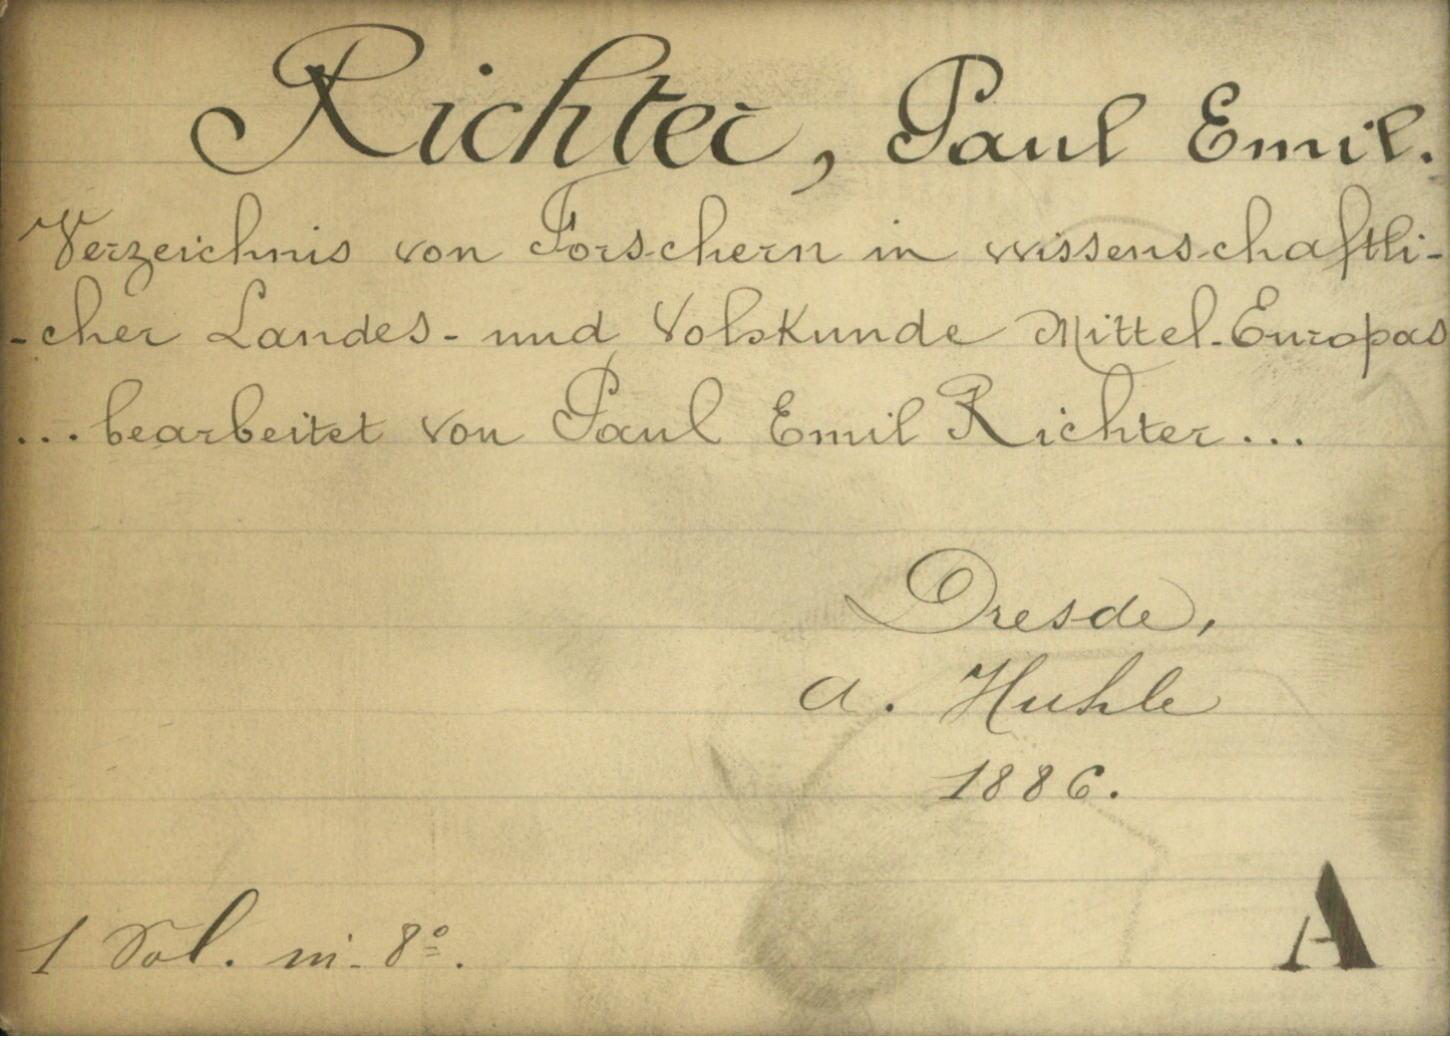 Richter, Paul Emil.
Verzeichnis von Forschern in wissenschaftli-
-cher Landes- und Volskunde Mittel-Europas
... bearbeitet von Paul Emil Richter...
Dresde,
A. Huhle
1886.
1 Vol. in-8º.
A